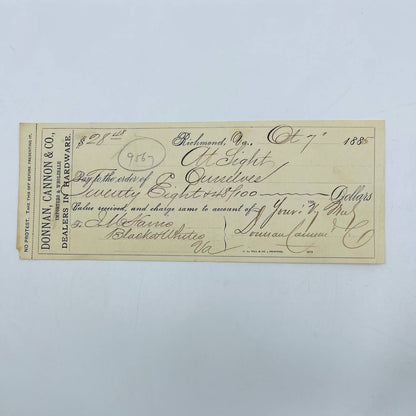 NO PROTEST. TAKE THIS OFF BEFORE PRESENTING IT.
DONNAN, CANNON & CO.,
IMPORTERS & WHOLESALE
DEALERS IN HARDWARE.
$28 48
Richmond, Va., Oct 7 1885
9567
At Sight
Pay to the order of Ourselves
Twenty Eight & 48/100 Dollars
Value received, and charge same to account of
To
Blacks & Whites
Va
Donnan Cannon & Co